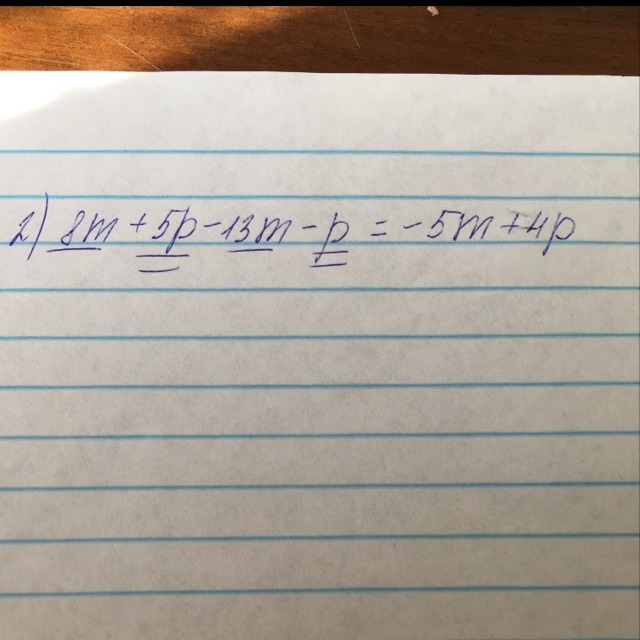 2) 8m + 5p - 13m - p = -5m + 4p